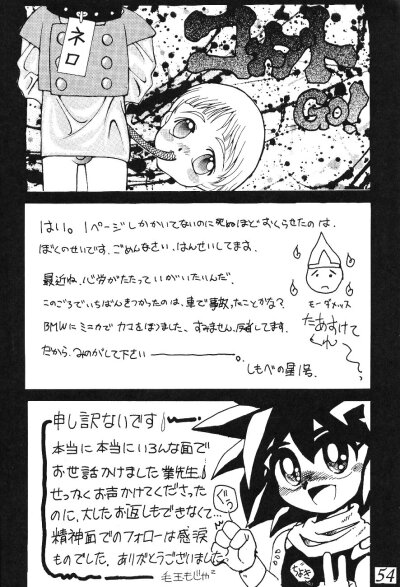 ネロ
GO!
はい。1ページしかかいてないのに死ぬほどおくらせたのは、
ぼくのせいです。ごめんなさい、はんせいしてます。
最近ね、心労がたたっていがいたいんだ。
このごろでいちばんきつかったのは、車で事故ったことかな?
BMWにミニカでカマをほりました、すみません、反省してます。
だから、みのがして下さい
しもべの星1号.
モーダメッス
たあすけて
くれ〜
申し訳ないです
本当に本当にいろんな面で
お世話かけました 業先生
せっかくお声かけてくださった
のに、大したお返しもできなくて…
精神面でのフォローは感涙
ものでした。ありがとうございました
毛玉もじゃ²
54